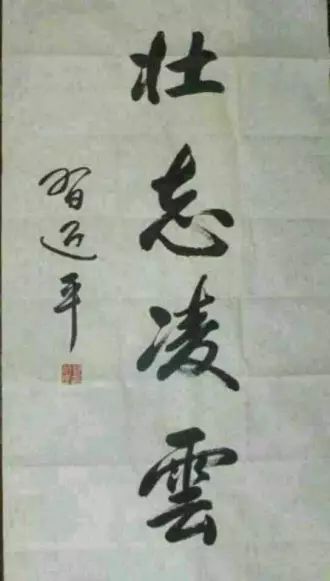 壯志凌雲
習近平